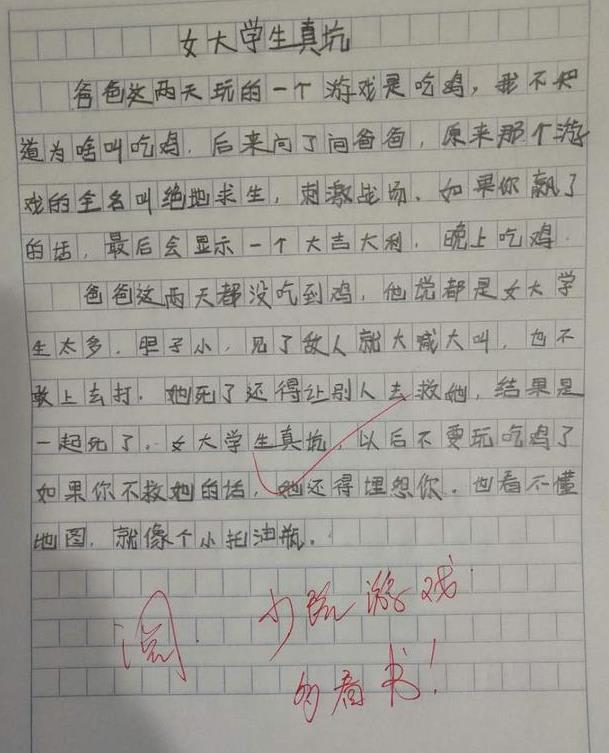 女大学生真坑
爸爸这两天玩的一个游戏是吃鸡，我不知
道为啥叫吃鸡．后来问了问爸爸，原来那个游
戏的全名叫绝地求生，刺激战场．如果你飙了
的话，最后会显示一个大吉大利，晚上吃鸡．
爸爸这两天都没吃到鸡，他说都是女大学
生太多．胆子小．见了敌人就大喊大叫，也不
敢上去打．她死了还得让别人去救她，结果是
一起死了．女大学生真坑，以后不要玩吃鸡了
如果你不救她的话，她还得埋怨你．也看不懂
地图．就像个小拖油瓶。
阅．少玩游戏
多看书！